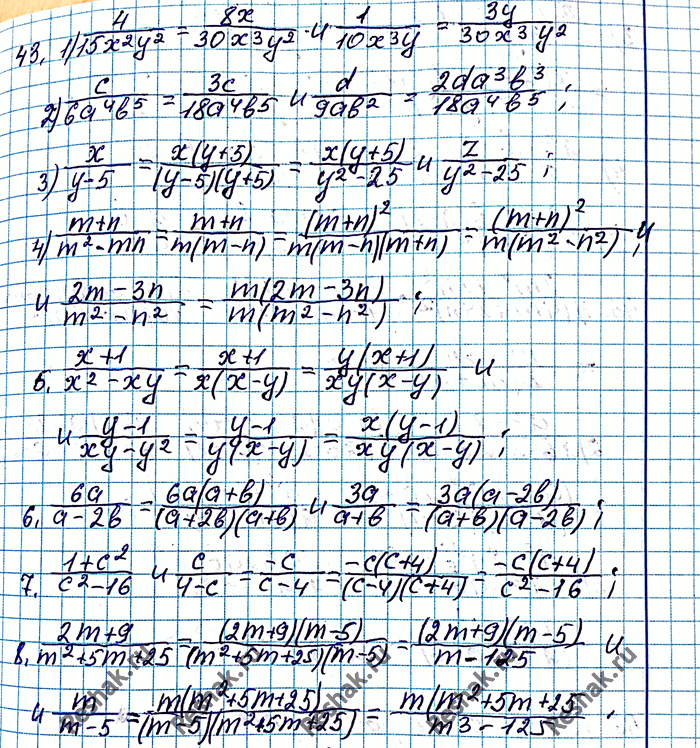 43. 1) 4/15x²y² = 8x/30x³y² и 1/10x³y = 3y/30x³y²
2) c/6a⁴b⁵ = 3c/18a⁴b⁵ и d/9ab² = 2da³b³/18a⁴b⁵ ;
3) x/y-5 = x(y+5)/(y-5)(y+5) = x(y+5)/y²-25 и z/y²-25 ;
4) m+n/m²-mn = m+n/m(m-n) = (m+n)²/m(m-n)(m+n) = (m+n)²/m(m²-n²) ; и
и 2m-3n/m²-n² = m(2m-3n)/m(m²-n²) ;
5. x+1/x²-xy = x+1/x(x-y) = y(x+1)/xy(x-y) и
и y-1/xy-y² = y-1/y(x-y) = x(y-1)/xy(x-y) ;
6. 6a/a-2b = 6a(a+b)/(a+2b)(a+b) и 3a/a+b = 3a(a-2b)/(a+b)(a-2b) ;
7. 1+c²/c²-16 и c/4-c = -c/c-4 = -c(c+4)/(c-4)(c+4) = -c(c+4)/c²-16 ;
8. 2m+9/m²+5m+25 = (2m+9)(m-5)/(m²+5m+25)(m-5) = (2m+9)(m-5)/m-125 и
и m/m-5 = m(m²+5m+25)/(m-5)(m²+5m+25) = m(m²+5m+25/m3-125 .
Reshak.ru
Reshak.ru
Reshak.ru